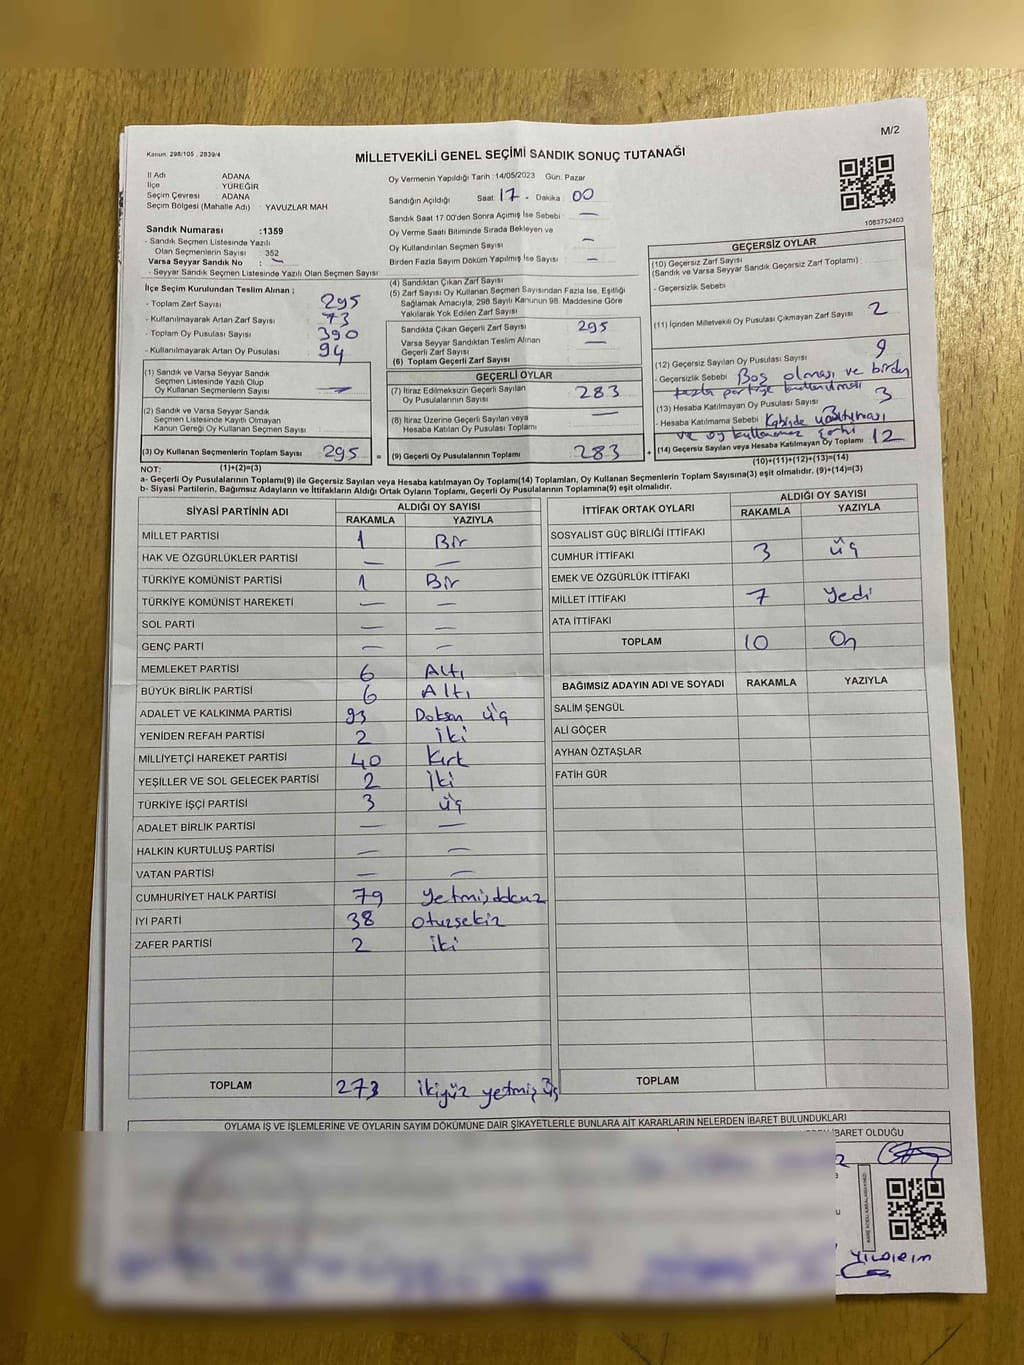 M/2
Kanun: 298/105 , 2839/4
MİLLETVEKİLİ GENEL SEÇİMİ SANDIK SONUÇ TUTANAĞI
1083752403
İl Adı ADANA
İlçe YÜREĞİR
Seçim Çevresi ADANA
Seçim Bölgesi (Mahalle Adı) : YAVUZLAR MAH
Sandık Numarası :1359
- Sandık Seçmen Listesinde Yazılı
Olan Seçmenlerin Sayısı : 352
Varsa Seyyar Sandık No : -
- Seyyar Sandık Seçmen Listesinde Yazılı Olan Seçmen Sayısı
Oy Vermenin Yapıldığı Tarih : 14/05/2023 Gün: Pazar
Sandığın Açıldığı Saat: 17 - Dakika: 00
Sandık Saat 17:00'den Sonra Açımış İse Sebebi —
Oy Verme Saati Bitiminde Sırada Bekleyen ve
Oy Kullandırılan Seçmen Sayısı —
Birden Fazla Sayım Döküm Yapılmış İse Sayısı —
İlçe Seçim Kurulundan Teslim Alınan :
- Toplam Zarf Sayısı 295
- Kullanılmayarak Artan Zarf Sayısı 73
- Toplam Oy Pusulası Sayısı 390
- Kullanılmayarak Artan Oy Pusulası 94
(1) Sandık ve Varsa Seyyar Sandık
Seçmen Listesinde Yazılı Olup
Oy Kullanan Seçmenlerin Sayısı —
(2) Sandık ve Varsa Seyyar Sandık
Seçmen Listesinde Kayıtlı Olmayan
Kanun Gereği Oy Kullanan Seçmen Sayısı
(3) Oy Kullanan Seçmenlerin Toplam Sayısı 295 =
(4) Sandıktan Çıkan Zarf Sayısı
(5) Zarf Sayısı Oy Kullanan Seçmen Sayısından Fazla İse, Eşitliği
Sağlamak Amacıyla, 298 Sayılı Kanunun 98. Maddesine Göre
Yakılarak Yok Edilen Zarf Sayısı
Sandıkta Çıkan Geçerli Zarf Sayısı 295
Varsa Seyyar Sandıktan Teslim Alınan
Geçerli Zarf Sayısı —
(6) Toplam Geçerli Zarf Sayısı
GEÇERLİ OYLAR
(7) İtiraz Edilmeksizin Geçerli Sayılan
Oy Pusulalarının Sayısı 283
(8) İtiraz Üzerine Geçerli Sayılan veya
Hesaba Katılan Oy Pusulası Toplamı —
(9) Geçerli Oy Pusulalarının Toplamı 283 +
GEÇERSİZ OYLAR
(10) Geçersiz Zarf Sayısı
(Sandık ve Varsa Seyyar Sandık Geçersiz Zarf Toplamı)
- Geçersizlik Sebebi
(11) İçinden Milletvekili Oy Pusulası Çıkmayan Zarf Sayısı 2
(12) Geçersiz Sayılan Oy Pusulası Sayısı 9
- Geçersizlik Sebebi Boş olması ve birden
fazla partiye kullanılması
(13) Hesaba Katılmayan Oy Pusulası Sayısı 3
- Hesaba Katılmama Sebebi Kabinde unutulması
ve oy kullanmaz şerhi
(14) Geçersiz Sayılan veya Hesaba Katılmayan Oy Toplamı 12
NOT: (1)+(2)=(3)
(10)+(11)+(12)+(13)=(14)
a- Geçerli Oy Pusulalarının Toplamı(9) ile Geçersiz Sayılan veya Hesaba katılmayan Oy Toplamı(14) Toplamları, Oy Kullanan Seçmenlerin Toplam Sayısına(3) eşit olmalıdır. (9)+(14)=(3)
b- Siyasi Partilerin, Bağımsız Adayların ve İttifakların Aldığı Ortak Oyların Toplamı, Geçerli Oy Pusulalarının Toplamına(9) eşit olmalıdır.
SİYASİ PARTİNİN ADI ALDIĞI OY SAYISI
RAKAMLA YAZIYLA
MİLLET PARTİSİ 1 Bir
HAK VE ÖZGÜRLÜKLER PARTİSİ — —
TÜRKİYE KOMÜNİST PARTİSİ 1 Bir
TÜRKİYE KOMÜNİST HAREKETİ — —
SOL PARTİ — —
GENÇ PARTİ — —
MEMLEKET PARTİSİ 6 Altı
BÜYÜK BİRLİK PARTİSİ 6 Altı
ADALET VE KALKINMA PARTİSİ 93 Doksan üç
YENİDEN REFAH PARTİSİ 2 iki
MİLLİYETÇİ HAREKET PARTİSİ 40 Kırk
YEŞİLLER VE SOL GELECEK PARTİSİ 2 İki
TÜRKİYE İŞÇİ PARTİSİ 3 üç
ADALET BİRLİK PARTİSİ — —
HALKIN KURTULUŞ PARTİSİ — —
VATAN PARTİSİ — —
CUMHURİYET HALK PARTİSİ 79 yetmişdokuz
İYİ PARTİ 38 otuzsekiz
ZAFER PARTİSİ 2 iki
TOPLAM 273 ikiyüz yetmiş üç
İTTİFAK ORTAK OYLARI ALDIĞI OY SAYISI
RAKAMLA YAZIYLA
SOSYALİST GÜÇ BİRLİĞİ İTTİFAKI
CUMHUR İTTİFAKI 3 üç
EMEK VE ÖZGÜRLÜK İTTİFAKI
MİLLET İTTİFAKI 7 Yedi
ATA İTTİFAKI
TOPLAM 10 On
BAĞIMSIZ ADAYIN ADI VE SOYADI RAKAMLA YAZIYLA
SALİM ŞENGÜL
ALİ GÖÇER
AYHAN ÖZTAŞLAR
FATİH GÜR
TOPLAM
OYLAMA İŞ VE İŞLEMLERİNE VE OYLARIN SAYIM DÖKÜMÜNE DAİR ŞİKAYETLERLE BUNLARA AİT KARARLARIN NELERDEN İBARET BULUNDUKLARI
İBARET OLDUĞU
YILDIRIM